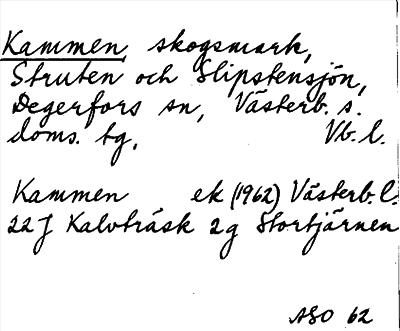 Kammen, skogsmark,
Struten och Slipstensjön,
Degerfors sn, Västerb. s.
doms. tg, Vb. l.
Kammen ek (1962) Västerb. l.
22 J Kalvträsk 2 g Stortjärnen
ASO 62